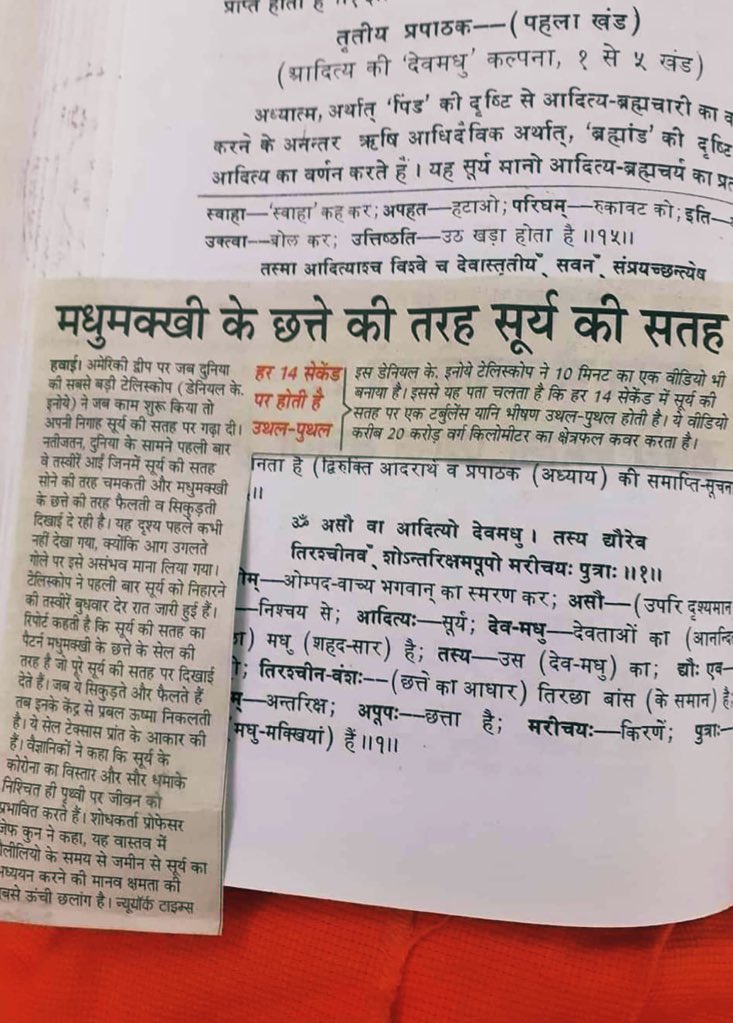 प्राप्त होता है
तृतीय प्रपाठक——(पहला खंड)
(आदित्य की 'देवमधु' कल्पना, १ से ५ खंड)
अध्यात्म, अर्थात् 'पिंड' की दृष्टि से आदित्य-ब्रह्मचारी का
करने के अनन्तर ऋषि आधिदैविक अर्थात्, 'ब्रह्मांड' की दृष्टि
आदित्य का वर्णन करते हैं। यह सूर्य मानो आदित्य-ब्रह्मचर्य का
स्वाहा—'स्वाहा' कह कर; अपहत—हटाओ; परिघम्—रुकावट को; इति—
उक्त्वा—बोल कर; उत्तिष्ठति—उठ खड़ा होता है ॥१५॥
तस्मा आदित्याश्च विश्वे च देवास्तृतीयँ सवनँ संप्रयच्छन्त्येष
मधुमक्खी के छत्ते की तरह सूर्य की सतह
हवाई। अमेरिकी द्वीप पर जब दुनिया
की सबसे बड़ी टेलिस्कोप (डेनियल के.
इनोये) ने जब काम शुरू किया तो
अपनी निगाह सूर्य की सतह पर गढ़ा दी।
नतीजतन, दुनिया के सामने पहली बार
वे तस्वीरें आईं जिनमें सूर्य की सतह
सोने की तरह चमकती और मधुमक्खी
के छत्ते की तरह फैलती व सिकुड़ती
दिखाई दे रही है। यह दृश्य पहले कभी
नहीं देखा गया, क्योंकि आग उगलते
गोले पर इसे असंभव माना लिया गया।
टेलिस्कोप ने पहली बार सूर्य को निहारने
की तस्वीरें बुधवार देर रात जारी हुई हैं।
रिपोर्ट कहती है कि सूर्य की सतह का
पैटर्न मधुमक्खी के छत्ते के सेल की
तरह है जो पूरे सूर्य की सतह पर दिखाई
देते हैं। जब ये सिकुड़ते और फैलते हैं
तब इनके केंद्र से प्रबल ऊष्मा निकलती
है। ये सेल टेक्सास प्रांत के आकार की
हैं। वैज्ञानिकों ने कहा कि सूर्य के
कोरोना का विस्तार और सौर धमाके
निश्चित ही पृथ्वी पर जीवन को
प्रभावित करते हैं। शोधकर्ता प्रोफेसर
जेफ कुन ने कहा, यह वास्तव में
लीलियो के समय से जमीन से सूर्य का
अध्ययन करने की मानव क्षमता की
बसे ऊंची छलांग है। न्यूयॉर्क टाइम्स
हर 14 सेकेंड
पर होती है
उथल-पुथल
इस डेनियल के. इनोये टेलिस्कोप ने 10 मिनट का एक वीडियो भी
बनाया है। इससे यह पता चलता है कि हर 14 सेकेंड में सूर्य की
सतह पर एक टर्बुलेंस यानि भीषण उथल-पुथल होती है। ये वीडियो
करीब 20 करोड़ वर्ग किलोमीटर का क्षेत्रफल कवर करता है।
नता है (द्विरुक्ति आदरार्थ व प्रपाठक (अध्याय) की समाप्ति-सूचन
॥
ॐ असौ वा आदित्यो देवमधु। तस्य द्यौरेव
तिरश्चीनवँ शोऽन्तरिक्षमपूपो मरीचयः पुत्राः ॥१॥
ओम्—ओम्पद-वाच्य भगवान् का स्मरण कर; असौ—(उपरि दृश्यमान
—निश्चय से; आदित्यः—सूर्य; देव-मधु—देवताओं का (आनन्दि
मधु (शहद-सार) है; तस्य—उस (देव-मधु) का; द्यौः एव—
तिरश्चीन-वंशः—(छत्ते का आधार) तिरछा बांस (के समान) है;
म्—अन्तरिक्ष; अपूपः—छत्ता है; मरीचयः—किरणें; पुत्राः—
मधु-मक्खियां) हैं ॥१॥